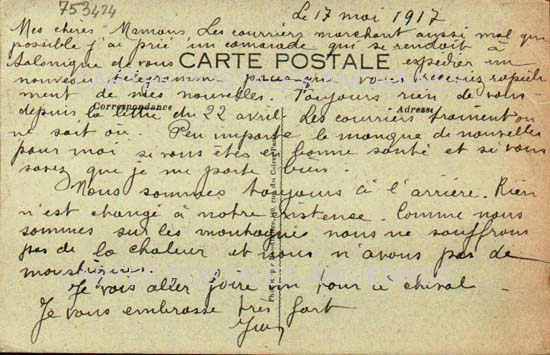 753424
Le 17 mai 1917
Mes chères Mamans, Les courriers marchent aussi mal que
possible j'ai prié un camarade qui se rendait à
Salonique de vous expédier un
CARTE POSTALE
nouveau télégramme pour que vous receviez rapide
ment de mes nouvelles. Toujours rien de vous
Correspondance
Adresse
depuis la lettre du 22 avril. Les courriers trainent on
ne sait où. Peu importe le manque de nouvelles
pour moi si vous êtes en bonne santé et si vous
savez que je me porte bien.
Nous sommes toujours à l'arrière. Rien
n'est changé à notre existence. Comme nous
sommes sur les montagnes nous ne souffrons
pas de la chaleur et nous n'avons pas de
moustiques.
Je vais aller faire un tour à cheval.
Je vous embrasse très fort